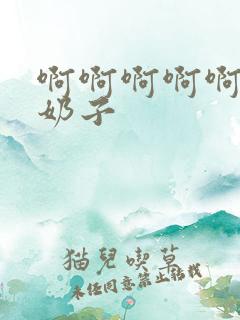 啊啊啊啊啊
奶子
猫兒喫草
未任同意禁止转载